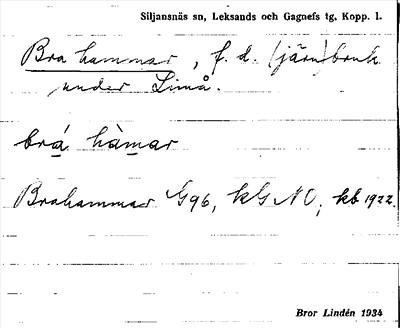 Siljansnäs sn, Leksands och Gagnefs tg, Kopp. l.
Bra hammar, f. d. (järn)bruk
under Limå.
brá hàmar
Brahammar G96, kG NO, kb 1922.
Bror Lindén 1934